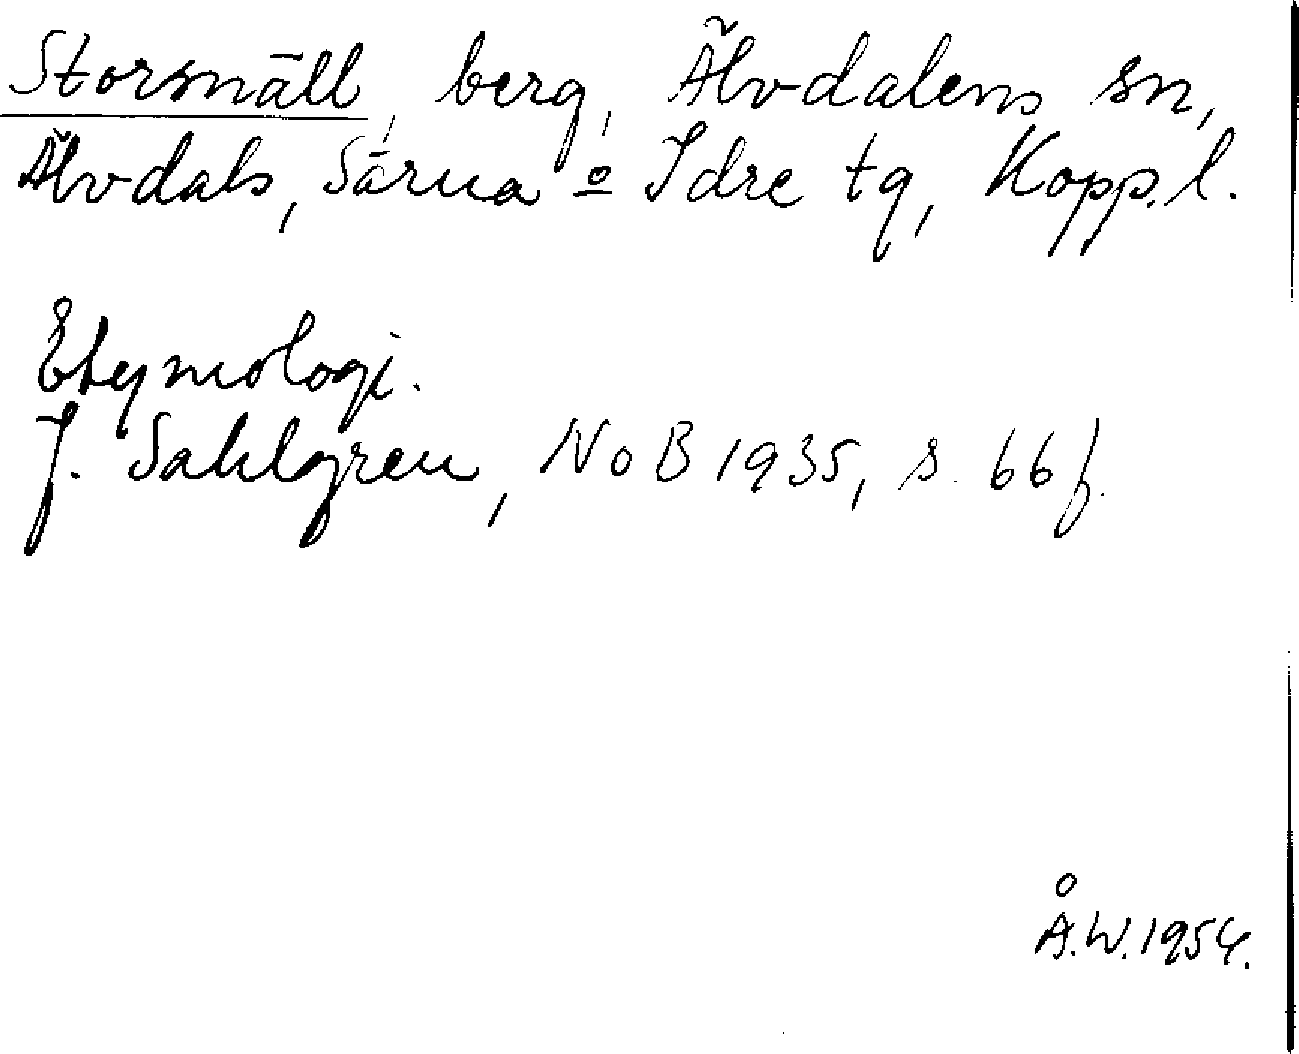 Storsnäll, berg, Älvdalens sn,
Älvdals, Särna o Idre tg, Kopp.l.
Etymologi.
J. Sahlgren, NoB 1935, s. 66 f.
Å.W. 1954.